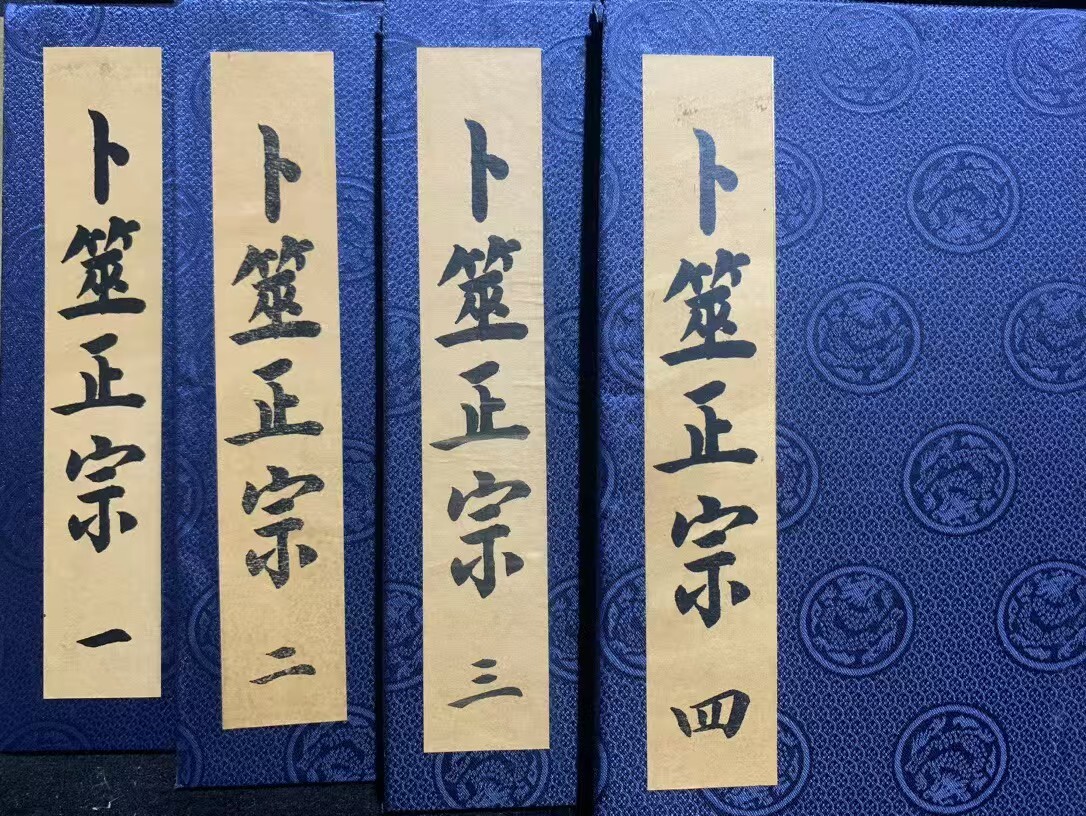 卜筮正宗 一
卜筮正宗 二
卜筮正宗 三
卜筮正宗 四